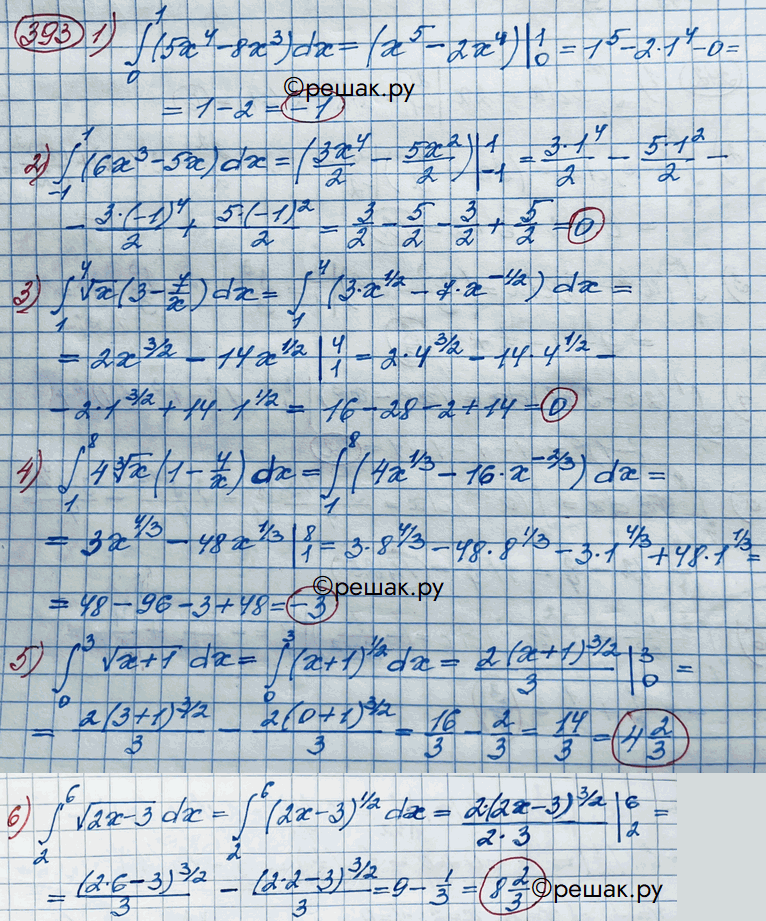 393 1) ∫₀¹ (5x⁴ − 8x³) dx = (x⁵ − 2x⁴) |₀¹ = 1⁵ − 2·1⁴ − 0 =
©решак.ру
= 1 − 2 = −1
2) ∫₋₁¹ (6x³ − 5x) dx = (3x⁴/2 − 5x²/2) |₋₁¹ = 3·1⁴/2 − 5·1²/2 −
− 3·(−1)⁴/2 + 5·(−1)²/2 = 3/2 − 5/2 − 3/2 + 5/2 = 0
3) ∫₁⁴ √x (3 − 7/x) dx = ∫₁⁴ (3·x^(1/2) − 7·x^(−1/2)) dx =
= 2x^(3/2) − 14x^(1/2) |₁⁴ = 2·4^(3/2) − 14·4^(1/2) −
− 2·1^(3/2) + 14·1^(1/2) = 16 − 28 − 2 + 14 = 0
4) ∫₁⁸ 4∛x (1 − 4/x) dx = ∫₁⁸ (4x^(1/3) − 16·x^(−2/3)) dx =
= 3x^(4/3) − 48x^(1/3) |₁⁸ = 3·8^(4/3) − 48·8^(1/3) − 3·1^(4/3) + 48·1^(1/3) =
©решак.ру
= 48 − 96 − 3 + 48 = −3
5) ∫₀³ √(x+1) dx = ∫₀³ (x+1)^(1/2) dx = 2(x+1)^(3/2)/3 |₀³ =
= 2(3+1)^(3/2)/3 − 2(0+1)^(3/2)/3 = 16/3 − 2/3 = 14/3 = 4 2/3
6) ∫₂⁶ √(2x−3) dx = ∫₂⁶ (2x−3)^(1/2) dx = 2·(2x−3)^(3/2)/(2·3) |₂⁶ =
= (2·6−3)^(3/2)/3 − (2·2−3)^(3/2)/3 = 9 − 1/3 = 8 2/3 ©решак.ру